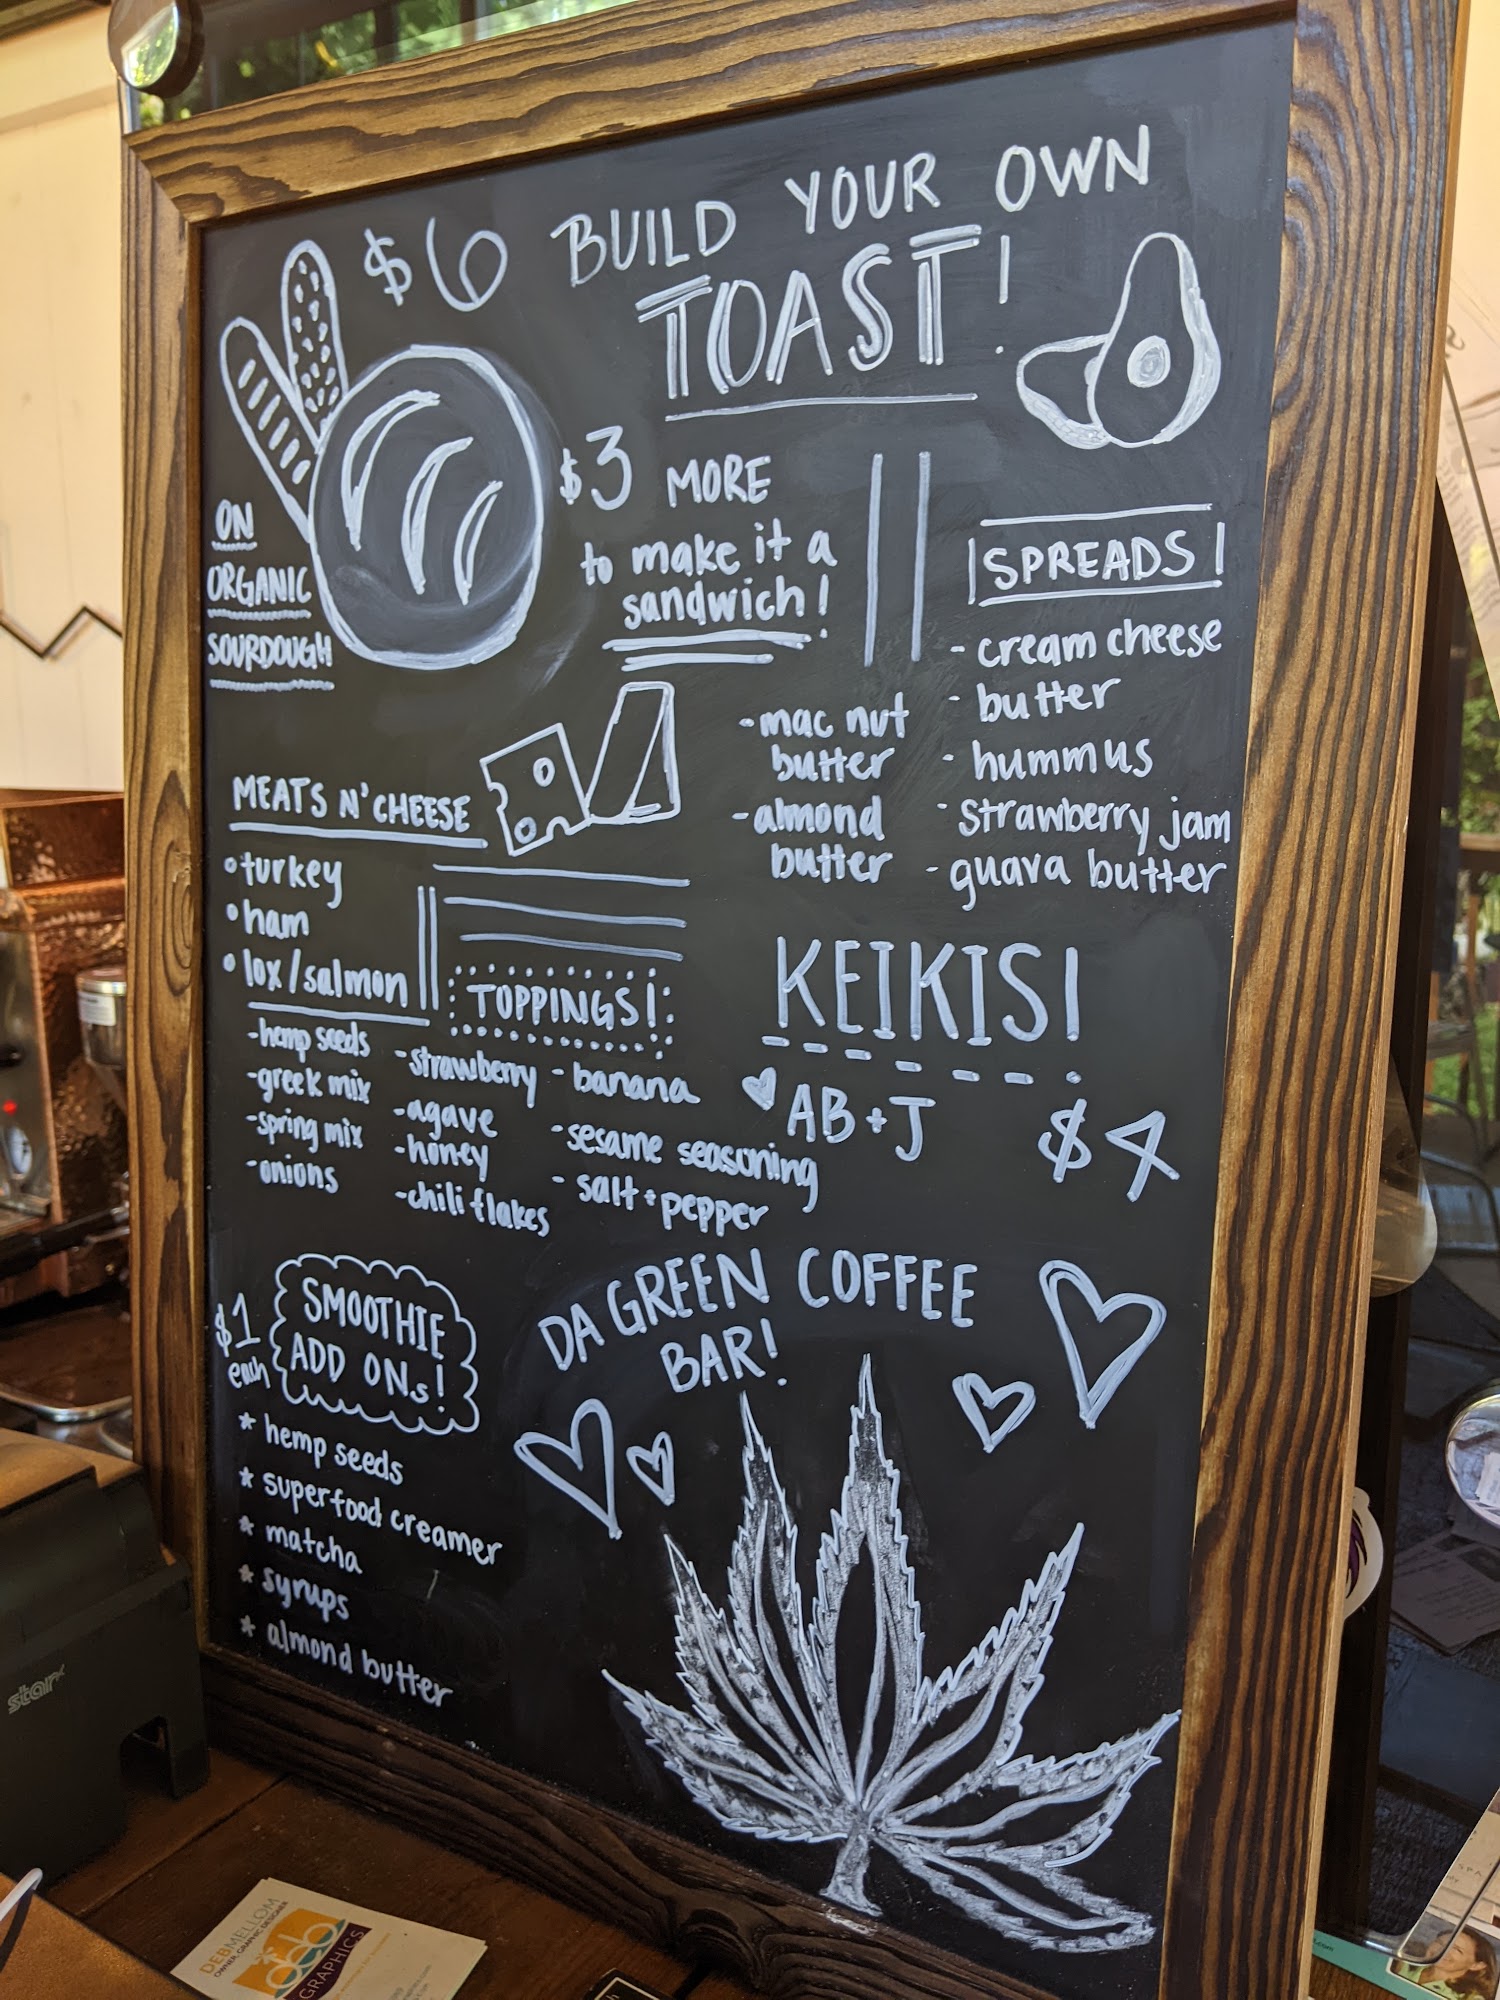 $6 BUILD YOUR OWN
TOAST!
ON
ORGANIC
SOURDOUGH
$3 MORE
to make it a
sandwich!
SPREADS!
- cream cheese
- butter
- hummus
- strawberry jam
- guava butter
- mac nut
butter
- almond
butter
MEATS N' CHEESE
• turkey
• ham
• lox/salmon
TOPPINGS!
- hemp seeds
- greek mix
- spring mix
- onions
- strawberry
- agave
- honey
- chili flakes
- banana
- sesame seasoning
- salt + pepper
KEIKIS!
AB+J $4
$1
each
SMOOTHIE
ADD ONs!
* hemp seeds
* superfood creamer
* matcha
* syrups
* almond butter
DA GREEN COFFEE
BAR!
star
DEBMELLOM
OWNER, GRAPHIC DESIGNER
deb
GRAPHICS